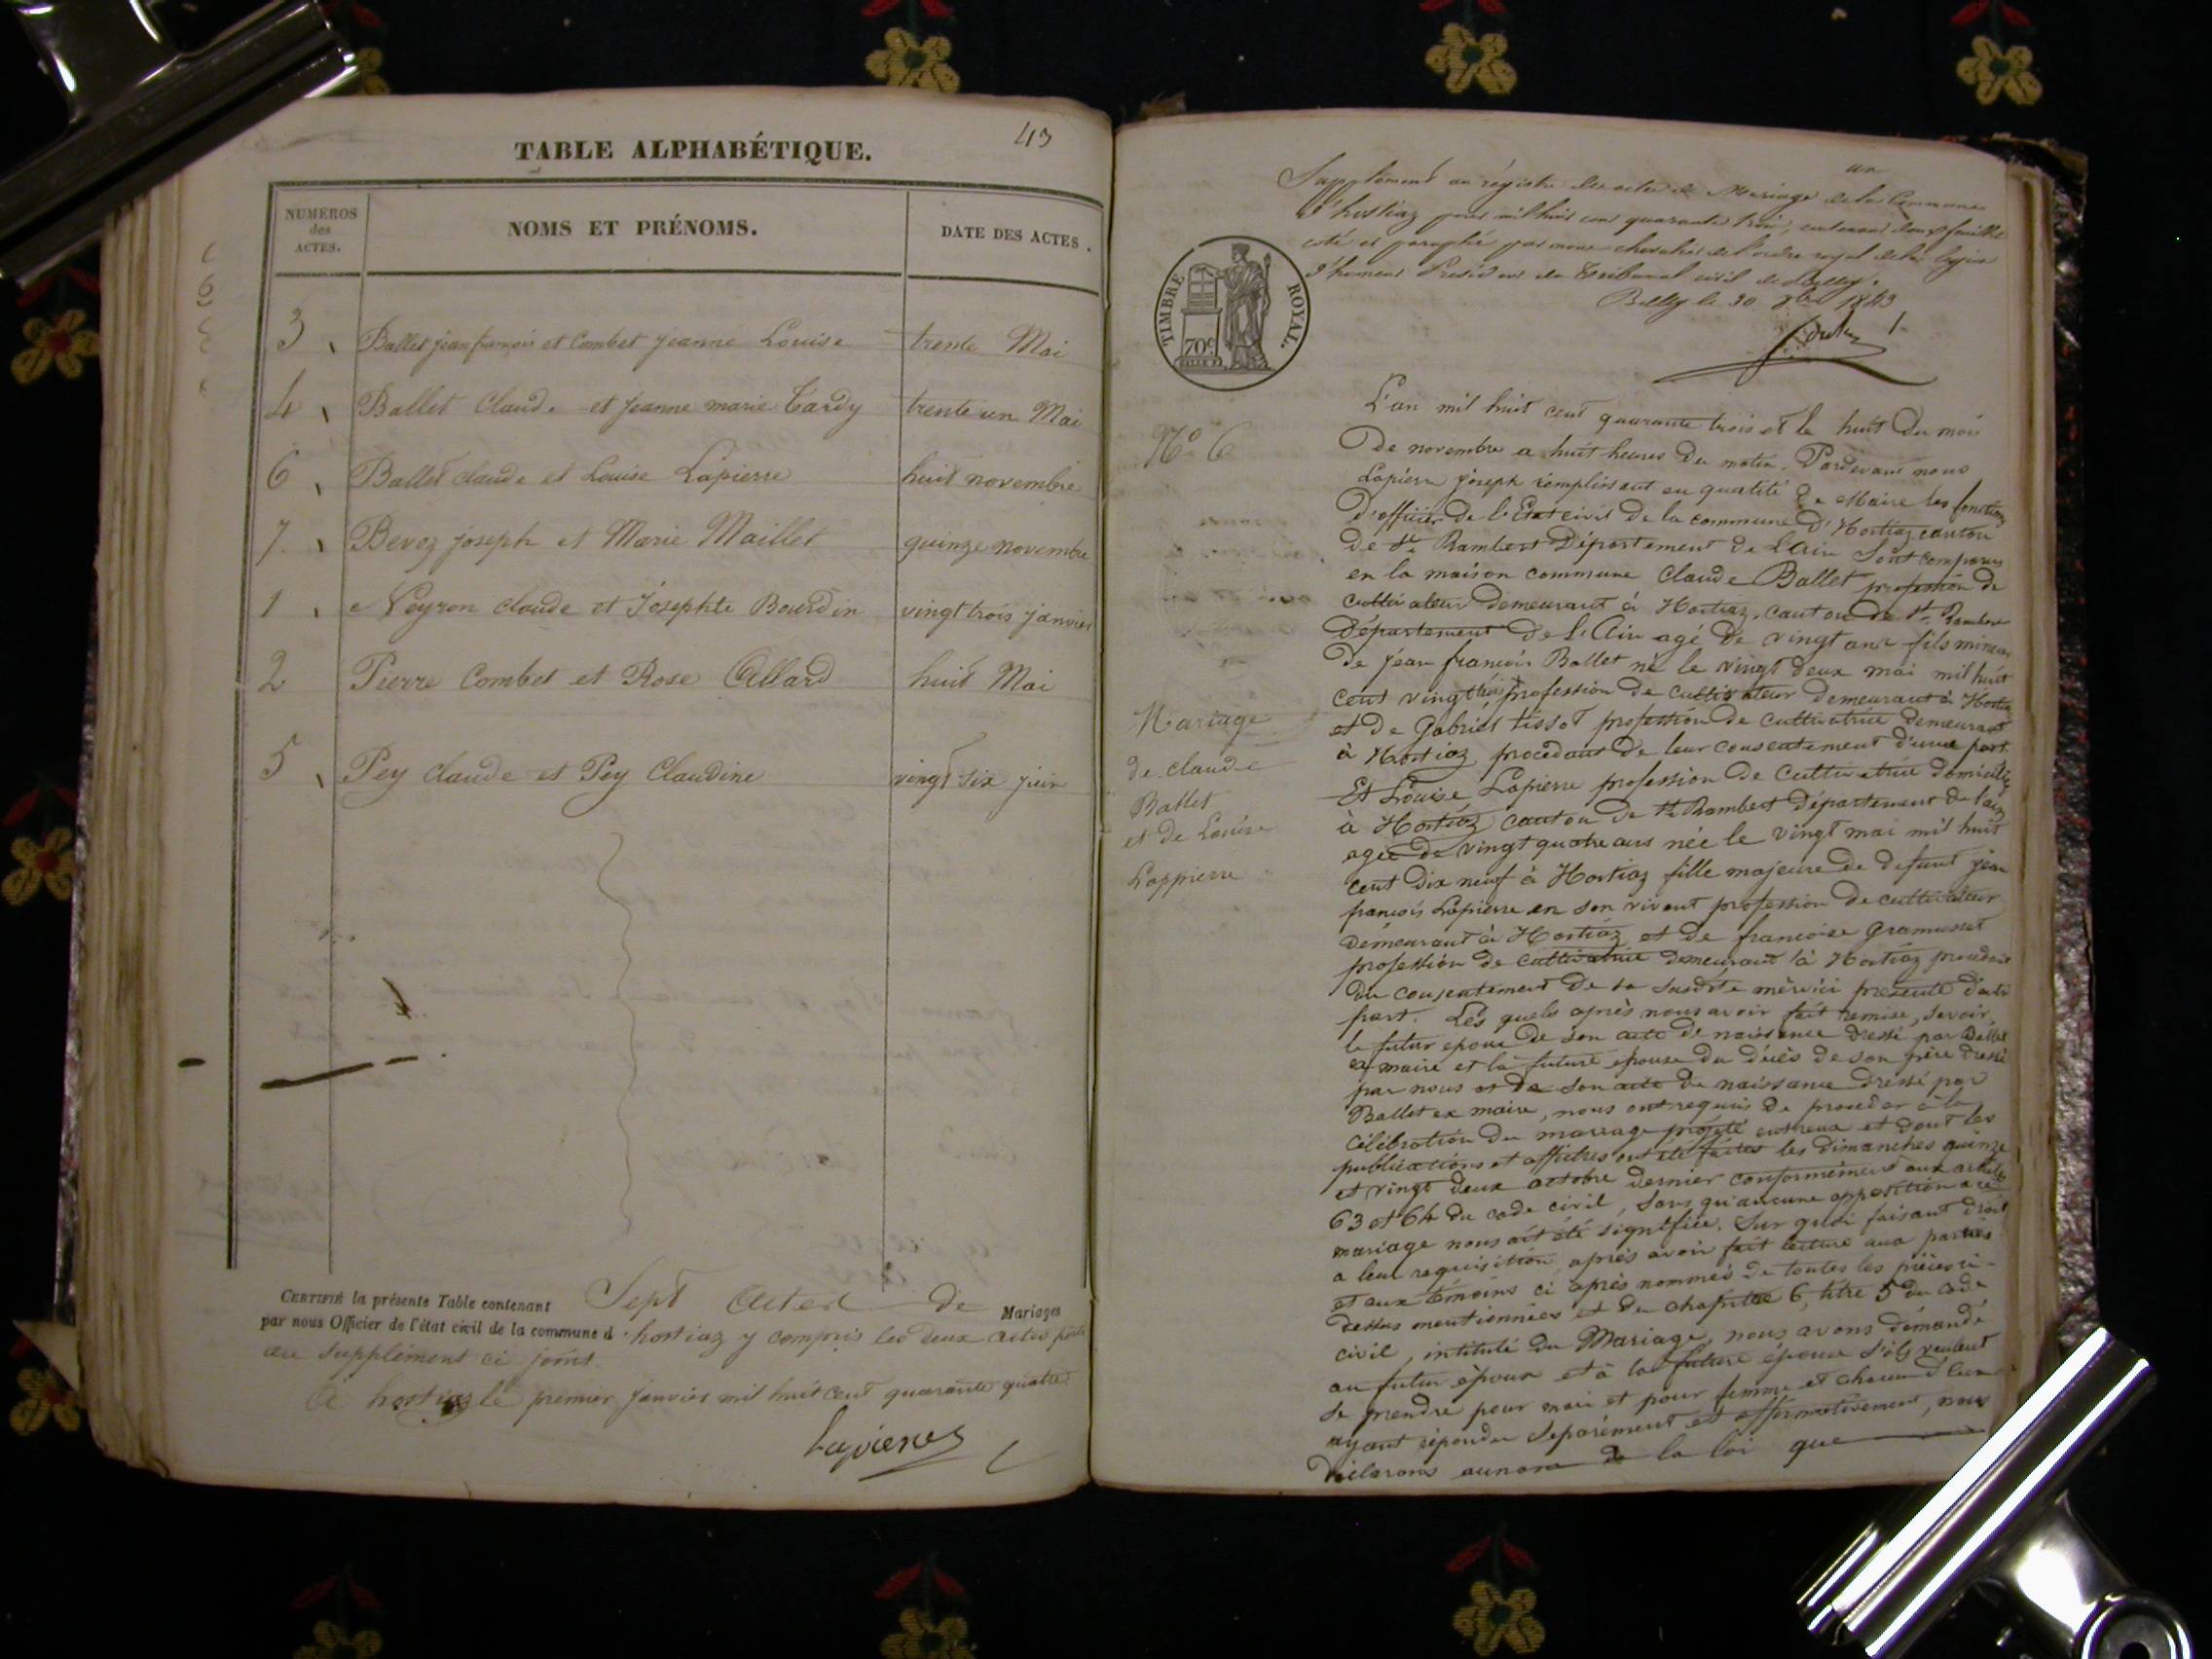 43
TABLE ALPHABÉTIQUE.
NUMÉROS des ACTES.
NOMS ET PRÉNOMS.
DATE DES ACTES.
3 Ballet jean françois et Combet jeanne Louise trente Mai
4 Ballet Claude et jeanne marie Tardy trente un Mai
6 Ballet claude et Louise Lapierre huit novembre
7 Bevoz joseph et Marie Maillet quinze novembre
1 Veyron claude et Josephte Bourdin vingt trois janvier
2 Pierre Combet et Rose Allard huit Mai
5 Pey claude et Pey Claudine vingt six juin
CERTIFIÉ la présente Table contenant Sept Actes de Mariages
par nous Officier de l'état civil de la commune d'hostiaz y compris les deux actes
au supplement ci joint.
A hostiaz le premier janvier mil huit cent quarante quatre
Lapierre
un
Supplément au régistre des actes de Mariage de la Commune
d'hostiaz pour mil huit cent quarante trois, contenant deux feuillets
coté et paraphé par nous chevalier de l'ordre royal de la légion
d'honneur Président du Tribunal civil de Belley.
Belley le 30 1843
TIMBRE ROYAL
70c
No 6
Mariage
de claude
Ballet
et de Louise
Lappierre
L'an mil huit cent quarante trois et le huit du mois
de novembre a huit heures du matin. Pardevant nous
Lapierre joseph remplissant en qualité de Maire les fonctions
d'officier de l'Etat civil de la commune d'Hostiaz canton
de St Rambert Département de L'ain Sont comparus
en la maison commune Claude Ballet profession de
cultivateur demeurant à Hostiaz, canton de St Rambert
Département de l'Ain agé de vingt ans fils mineur
de jean françois Ballet né le vingt deux mai mil huit
cent vingt trois, profession de cultivateur demeurant à Hostiaz
et de Gabriel tissot profession de cultivatrice demeurant
à Hostiaz procedant de leur consentement d'une part.
Et Louise Lapierre profession de cultivatrice domiciliée
à Hostiaz canton de St Rambert Département de l'ain
agée de vingt quatre ans née le vingt mai mil huit
cent dix neuf à Hostiaz fille majeure de defunt jean
françois Lapierre en son vivant profession de cultivateur
demeurant à Hostiaz et de françoise Gramusset
profession de cultivatrice demeurant à Hostiaz procedant
du consentement de sa susdite mère ici presente d'autre
part. Les quels après nous avoir fait remise, savoir,
le futur epoux de son acte de naissance dressé par Ballet
ex maire et la future epouse du décès de son père dressé
par nous et de son acte de naissance dressé par
Ballet ex maire, nous ont requis de proceder à la
célébration du mariage projeté entreeux et dont les
publications et affiches ont été faites les dimanches quinze
et vingt deux octobre dernier conformément aux articles
63 et 64 du code civil, sans qu'aucune opposition a ce
mariage nous ait été signifiée. Sur quoi faisant droit
a leur requisition, après avoir fait lecture aux parties
et aux témoins ci après nommés de toutes les pièces ci-
dessus mentionnées et du chapitre 6, titre 5 du code
civil, intitulé du Mariage, nous avons demandé
au futur époux et à la future épouse s'ils veulent
se prendre pour mari et pour femme et chacun d'eux
ayant répondu séparément et affirmativement, nous
déclarons au nom de la loi que